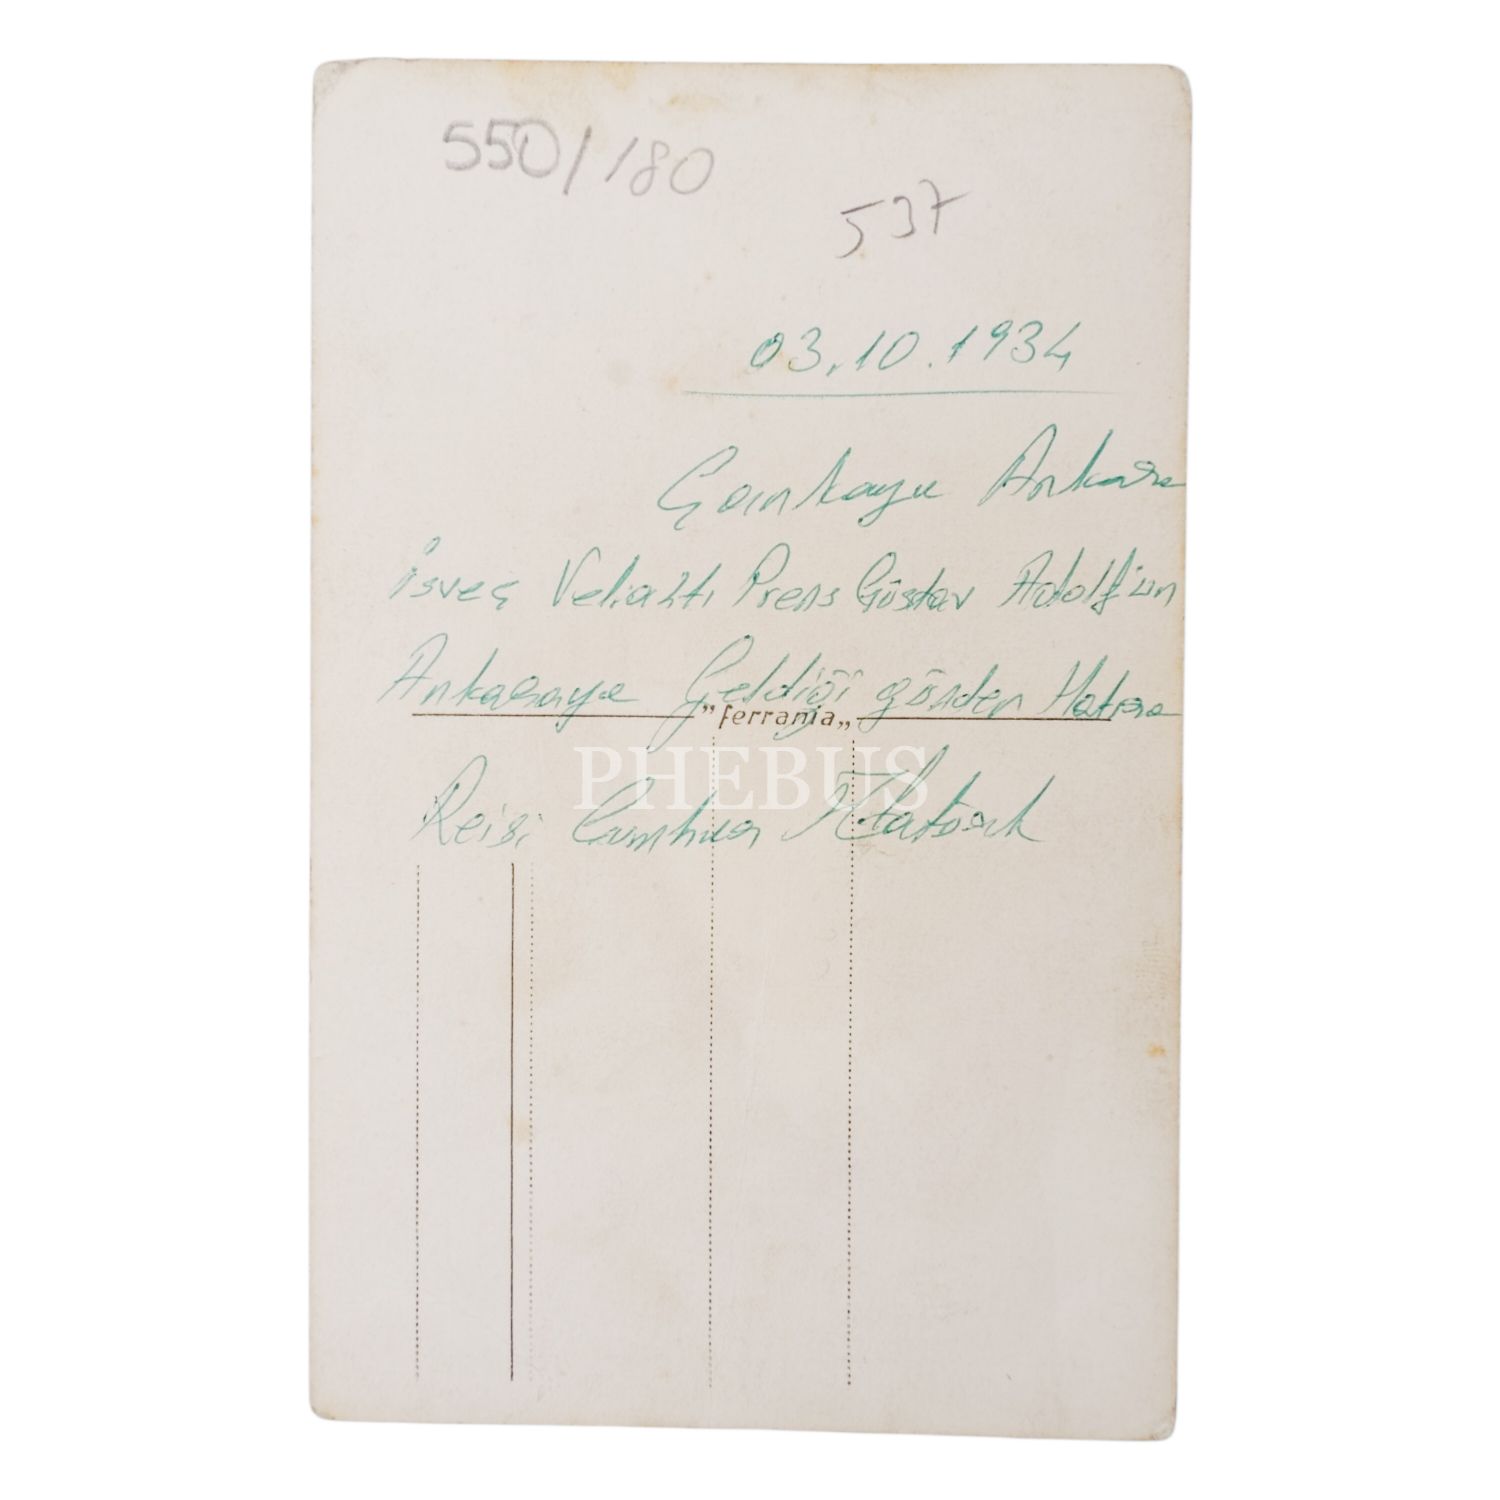 550/180
537
03.10.1934
Çankaya Ankara
İsveç Veliahtı Prens Güstav Adolf'ün
Ankaraya Geldiği günden Hatıra
„ferrania„
PHEBUS
Reisi Cumhur Atatürk